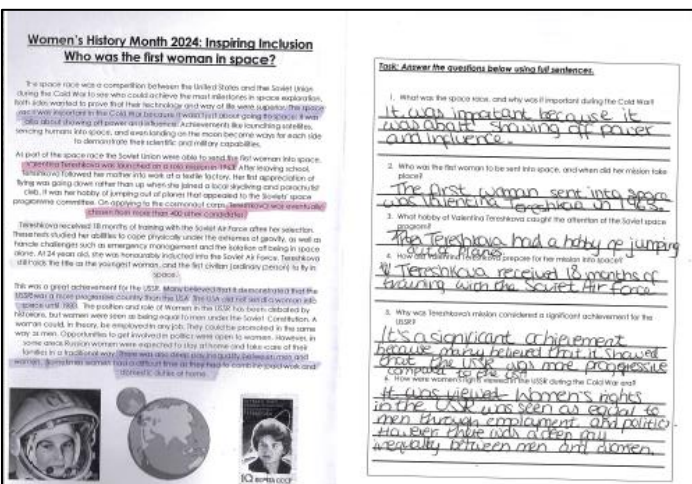 Women's History Month 2024: Inspiring Inclusion
Who was the first woman in space?
The space race was a competition between the United States and the Soviet Union
during the Cold War to see who could achieve the most milestones in space exploration.
Both sides wanted to prove that their technology and way of life were superior. The space
race was important in the Cold War because it wasn't just about going to space; it was
also about showing off power and influence. Achievements like launching satellites,
sending humans into space, and even landing on the moon became ways for each side
to demonstrate their scientific and military capabilities.
As part of the space race the Soviet Union were able to send the first woman into space.
Valentina Tereshkova was launched on a solo mission in 1963. After leaving school,
Tereshkova followed her mother into work at a textile factory. Her first appreciation of
flying was going down rather than up when she joined a local skydiving and parachutist
club. It was her hobby of jumping out of planes that appealed to the Soviets' space
programme committee. On applying to the cosmonaut corps, Tereshkova was eventually
chosen from more than 400 other candidates.
Tereshkova received 18 months of training with the Soviet Air Force after her selection.
These tests studied her abilities to cope physically under the extremes of gravity, as well as
handle challenges such as emergency management and the isolation of being in space
alone. At 24 years old, she was honourably inducted into the Soviet Air Force. Tereshkova
still holds the title as the youngest woman, and the first civilian (ordinary person) to fly in
space.
This was a great achievement for the USSR. Many believed that it demonstrated that the
USSR was a more progressive country than the USA. The USA did not send a woman into
space until 1983. The position and role of Women in the USSR has been debated by
historians, but women were seen as being equal to men under the Soviet Constitution. A
woman could, in theory, be employed in any job. They could be promoted in the same
way as men. Opportunities to get involved in politics were open to women. However, in
some areas Russian women were expected to stay at home and take care of their
families in a traditional way. There was also deep pay inequality between men and
women. Sometimes women had a difficult time as they had to combine paid work and
domestic duties at home.
Task: Answer the questions below using full sentences.
1. What was the space race, and why was it important during the Cold War?
It was important because it
was about showing off power
and influence.
2. Who was the first woman to be sent into space, and when did her mission take
place?
The first woman sent into space
was Valentina Tereshkova in 1963.
3. What hobby of Valentina Tereshkova caught the attention of the Soviet space
program?
Tereshkova had a hobby of jumping
out of planes.
4. How did Valentina Tereshkova prepare for her mission into space?
Tereshkova received 18 months of
training with the Soviet Air Force
5. Why was Tereshkova's mission considered a significant achievement for the
USSR?
It's a significant achievement
because many believed that it showed
that the USSR was more progressive
compared to the USA.
6. How were women's rights viewed in the USSR during the Cold War era?
It was viewed- Women's rights
in the USSR was seen as equal to
men through employment and politics.
However, there was a deep pay
inequality between men and women.